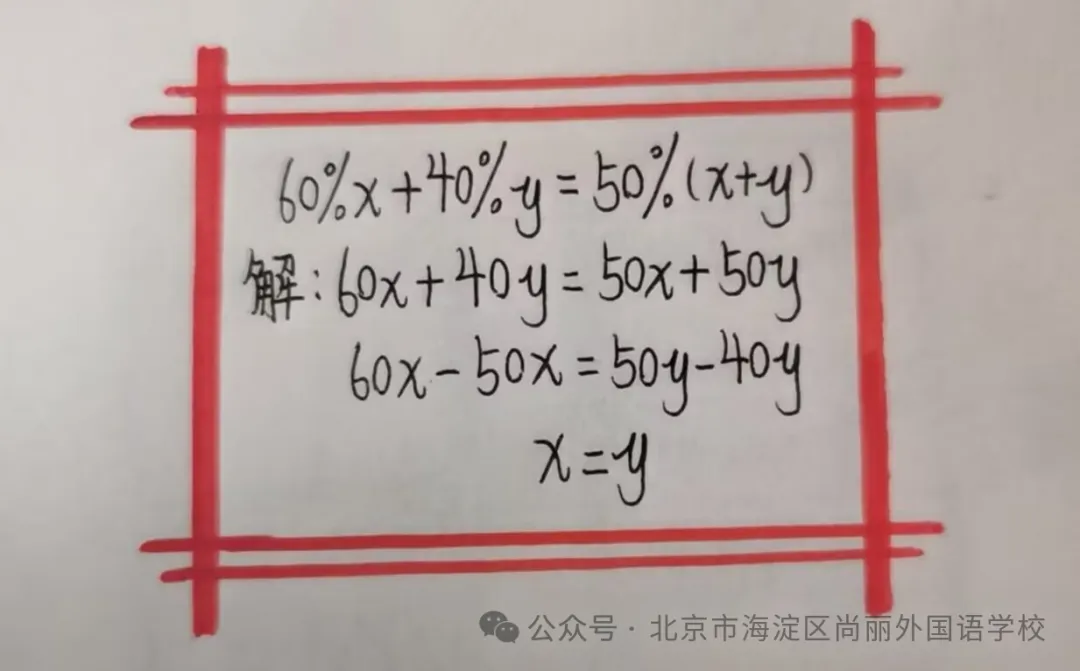 60%x+40%y=50%(x+y)
解:60x+40y=50x+50y
60x-50x=50y-40y
x=y
公众号·北京市海淀区尚丽外国语学校